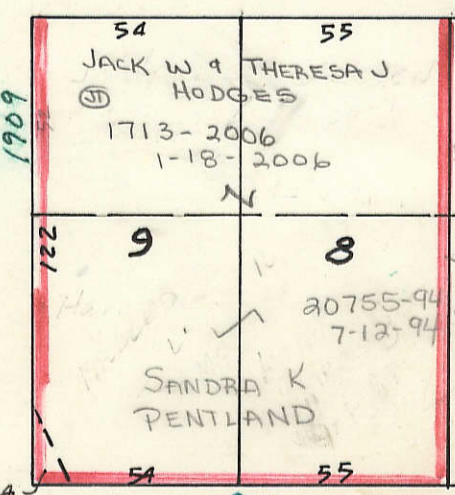 54 55
JACK W & THERESA J
JT HODGES
1713-2006
1-18-2006
1909
N
122
9 8
20755-94
7-12-94
SANDRA K
PENTLAND
54 55